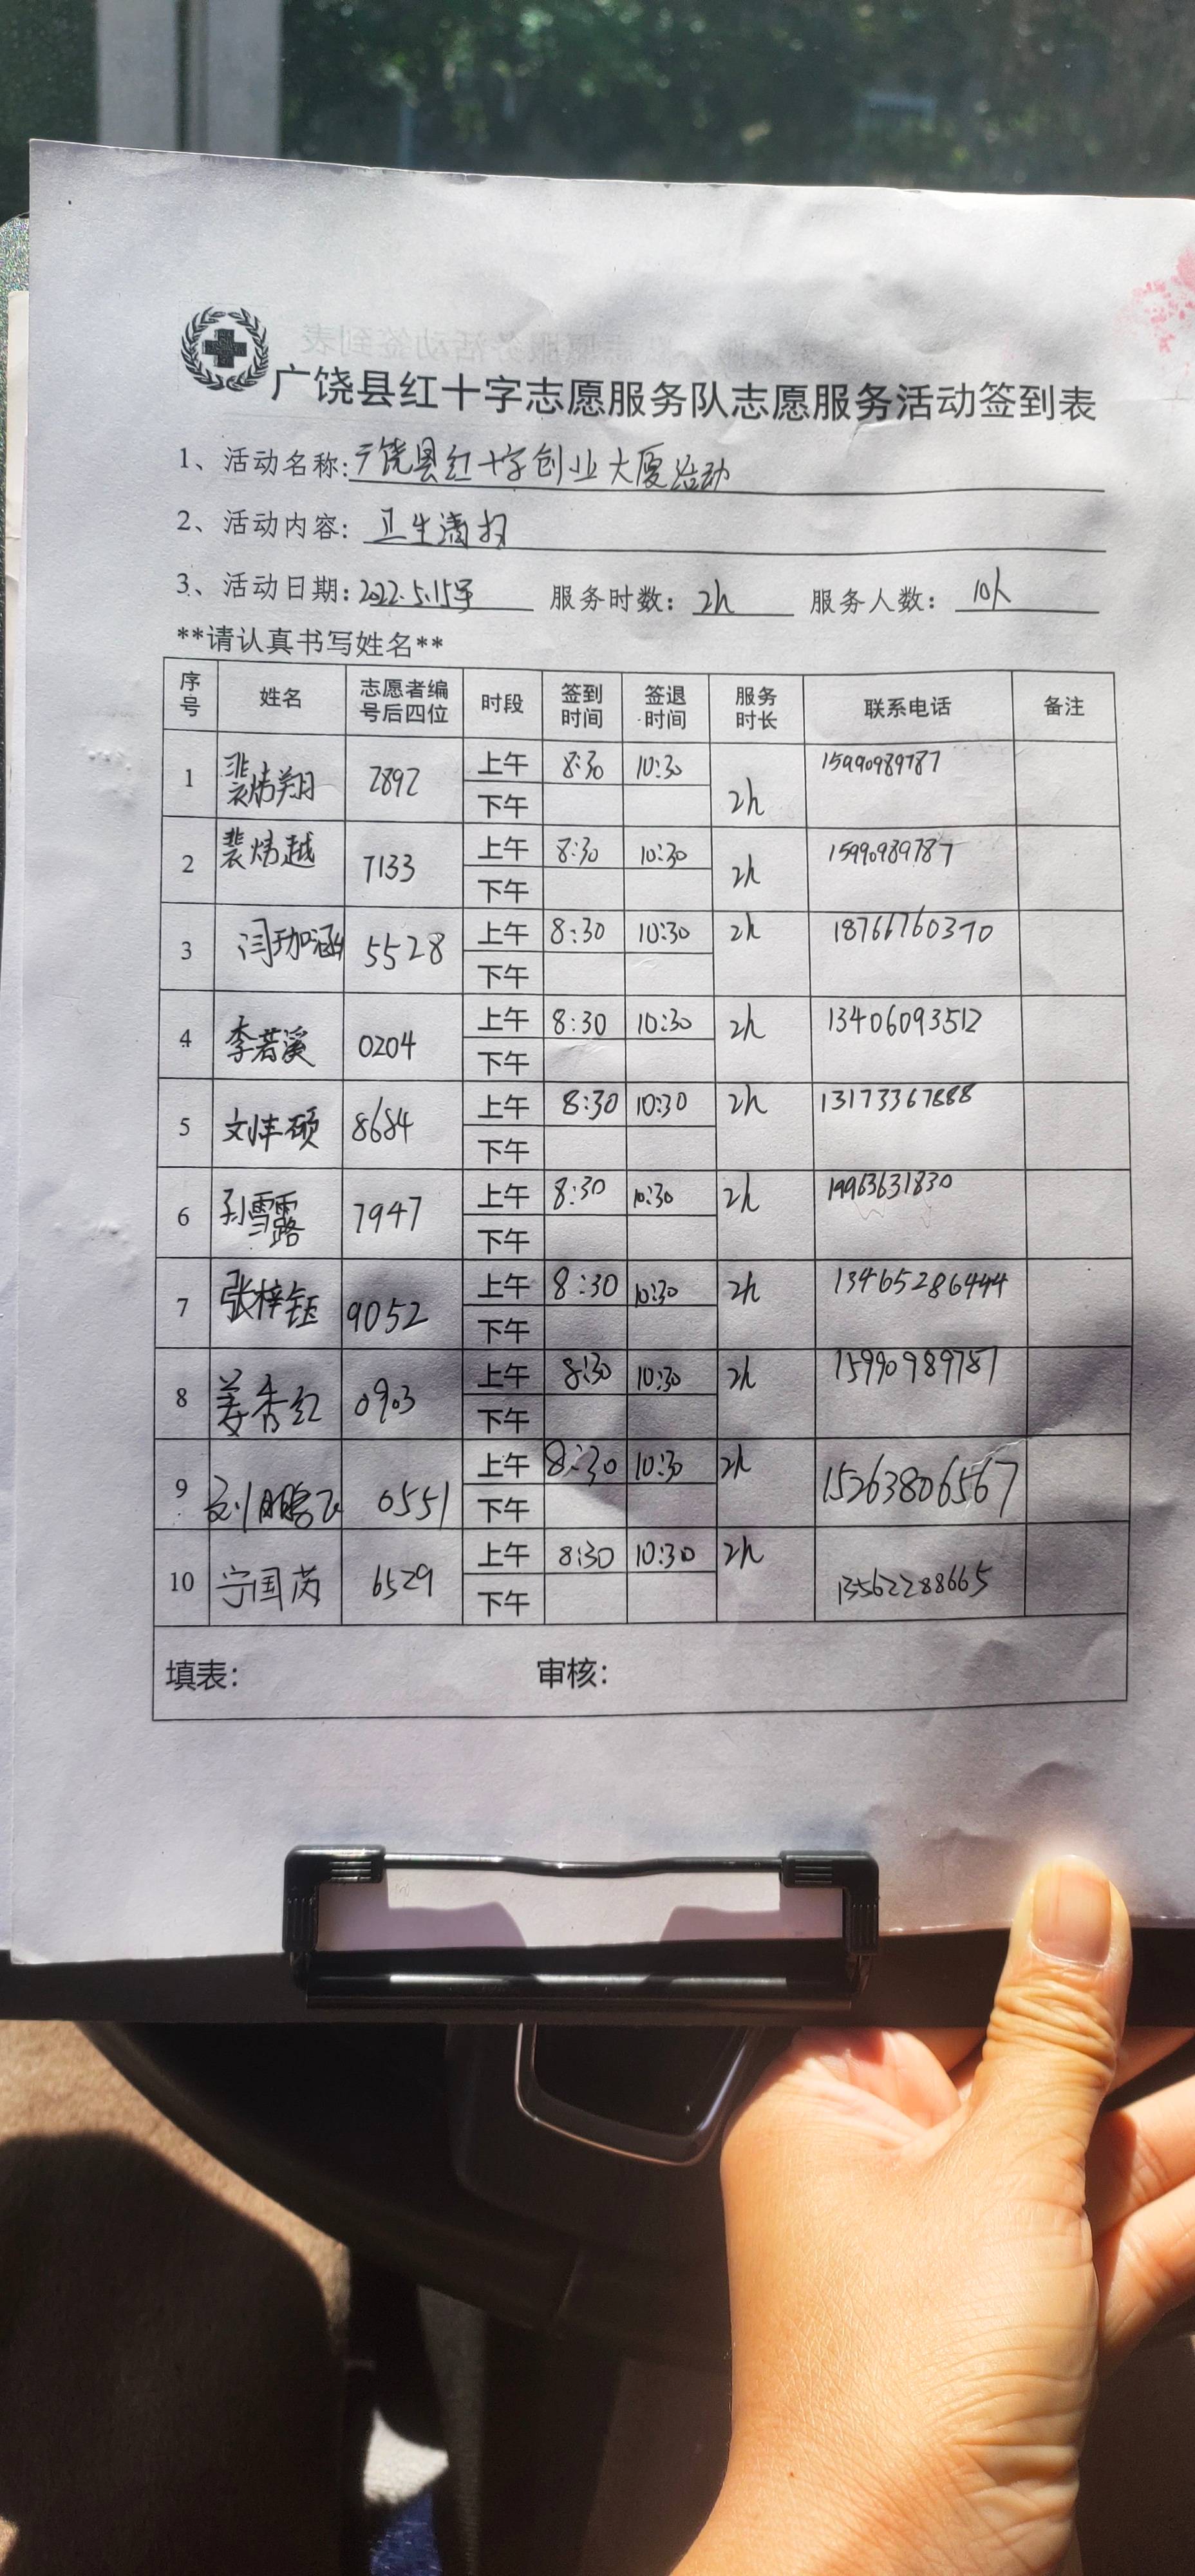 广饶县红十字志愿服务队志愿服务活动签到表
1、活动名称:广饶县红十字创业大厦活动
2、活动内容: 卫生清扫
3、活动日期:2022.5.15号 服务时数: 2h 服务人数: 10人
**请认真书写姓名**
序号 姓名 志愿者编号后四位 时段 签到时间 签退时间 服务时长 联系电话 备注
1 裴炜翔 2892 上午 8:30 10:30 2h 15990989787
下午
2 裴炜越 7133 上午 8:30 10:30 2h 15990989787
下午
3 闫珈涵 5528 上午 8:30 10:30 2h 18766760370
下午
4 李若溪 0204 上午 8:30 10:30 2h 13406093512
下午
5 刘丰硕 8684 上午 8:30 10:30 2h 13173367888
下午
6 孙雪露 7947 上午 8:30 10:30 2h 19963631830
下午
7 张梓钰 9052 上午 8:30 10:30 2h 13465286444
下午
8 姜秀红 0903 上午 8:30 10:30 2h 15990989787
下午
9 刘鹏飞 0551 上午 8:30 10:30 2h 15263806567
下午
10 宁国芮 6529 上午 8:30 10:30 2h 13562288665
下午
填表: 审核: